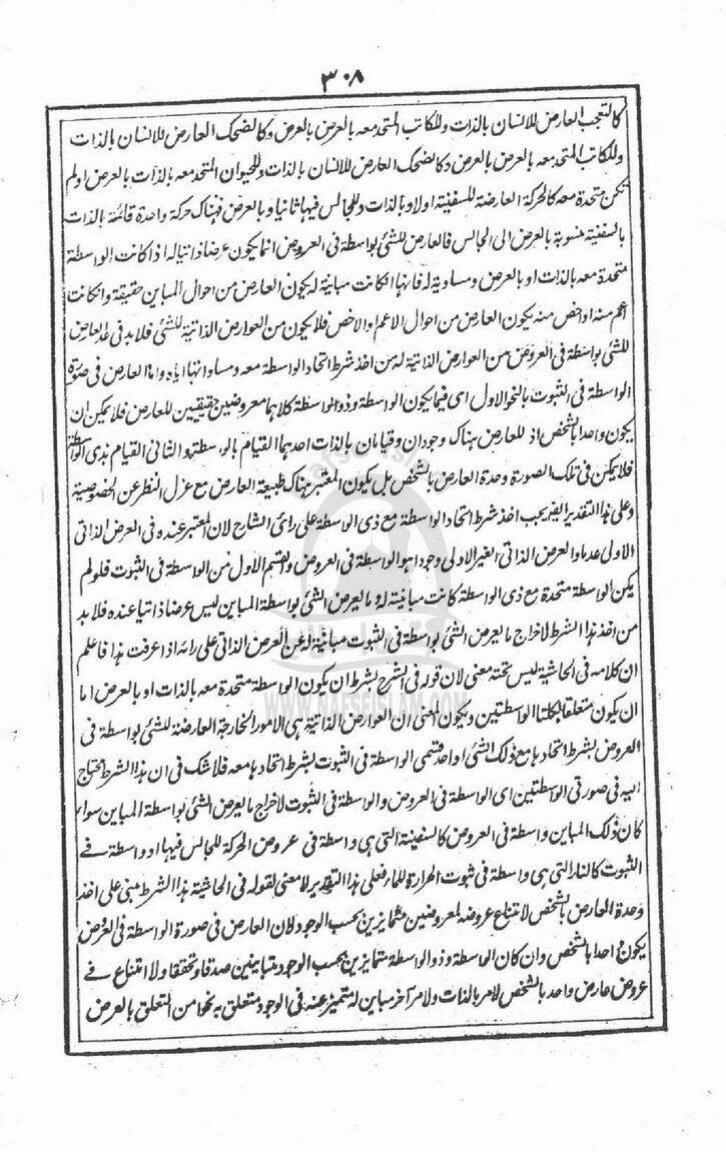 ٣٠٨
كالتعجب العارض للانسان بالذات وللكاتب المتحد معه بالعرض بالعرض وكالضحك العارض للانسان بالذات
وللكاتب المتحد معه بالعرض بالعرض وكالضحك العارض للانسان بالذات وللحيوان المتحد معه بالذات بالعرض اولم
تكن متحدة معه كالحركة العارضة للسفينة اولا وبالذات وللجالس فيها ثانيا وبالعرض فهناك حركة واحدة قائمة بالذات
بالسفينة منسوبة بالعرض الى الجالس فالعارض للشئ بواسطة فى العروض انما يكون عرضا ذاتيا له اذا كانت الواسطة
متحدة معه بالذات او بالعرض ومساوية له فانها انكانت مباينة له يكون العارض من احوال المباين حقيقة وانكانت
اعم منه او اخص منه يكون العارض من احوال الاعم والاخص فلا يكون من العوارض الذاتية للشئ فلا بد فى عد العارض
للشئ بواسطة فى العروض من العوارض الذاتية له من اخذ شرط اتحاد الواسطة معه ومساواتها اياه واما العارض فى صورة
الواسطة فى الثبوت بالنحو الاول اى فيما يكون الواسطة وذو الواسطة كلاهما معروضين حقيقيين للعارض فلا يمكن ان
يكون واحدا بالشخص اذ للعارض هناك وجودان وقيامان بالذات احدهما القيام بالواسطة والثانى القيام بذى الواسطة
فلا يمكن فى تلك الصورة وحدة العارض بالشخص بل يكون المعتبر هناك طبيعة العارض مع عزل النظر عن الخصوصية
وعلى هذا التقدير ايضا يجب اخذ شرط اتحاد الواسطة مع ذى الواسطة على راى الشارح لان المعتبر عنده فى العرض الذاتى
الاولى عدمها والعرض الذاتى الغير الاولى وجودها هو الواسطة فى العروض والقسم الاول من الواسطة فى الثبوت فلولم
يكن الواسطة متحدة مع ذى الواسطة كانت مباينة له وما يعرض الشئ بواسطة المباين ليس عرضا ذاتيا عنده فلا بد
من اخذ هذا الشرط لاخراج ما يعرض الشئ بواسطة فى الثبوت مباينة له عن العرض الذاتى على رائه اذا عرفت هذا فاعلم
ان كلامه فى الحاشية ليس تحته معنى لان قوله فى الشرح بشرط ان يكون الواسطة متحدة معه بالذات او بالعرض اما
ان يكون متعلقا بكلتا الواسطتين ويكون المعنى ان العوارض الذاتية هى الامور الخارجة العارضة للشئ بواسطة فى
العروض بشرط اتحادها مع ذلك الشئ او احد قسمى الواسطة فى الثبوت بشرط اتحادها معه فلا شك فى ان هذا الشرط محتاج
اليه فى صورتى الواسطتين اى الواسطة فى العروض والواسطة فى الثبوت لاخراج ما يعرض الشئ بواسطة المباين سواء
كان ذلك المباين واسطة فى العروض كالسفينة التى هى واسطة فى عروض الحركة للجالس فيها او واسطة فى
الثبوت كالنار التى هى واسطة فى ثبوت الحرارة للماء فعلى هذا التقدير لا معنى لقوله فى الحاشية هذا الشرط مبنى على اخذ
وحدة العارض بالشخص لامتناع عروضه لمعروضين متمايزين بحسب الوجود لان العارض فى صورة الواسطة فى العروض
يكون واحدا بالشخص وان كان الواسطة وذو الواسطة متمايزين بحسب الوجود متباينين صدقا وتحققا ولا امتناع فى
عروض عارض واحد بالشخص لامر بالذات ولامر آخر مباين له متميز عنه فى الوجود متعلق به نحوا من التعلق بالعرض
WWW.NAFSEISLAM.COM